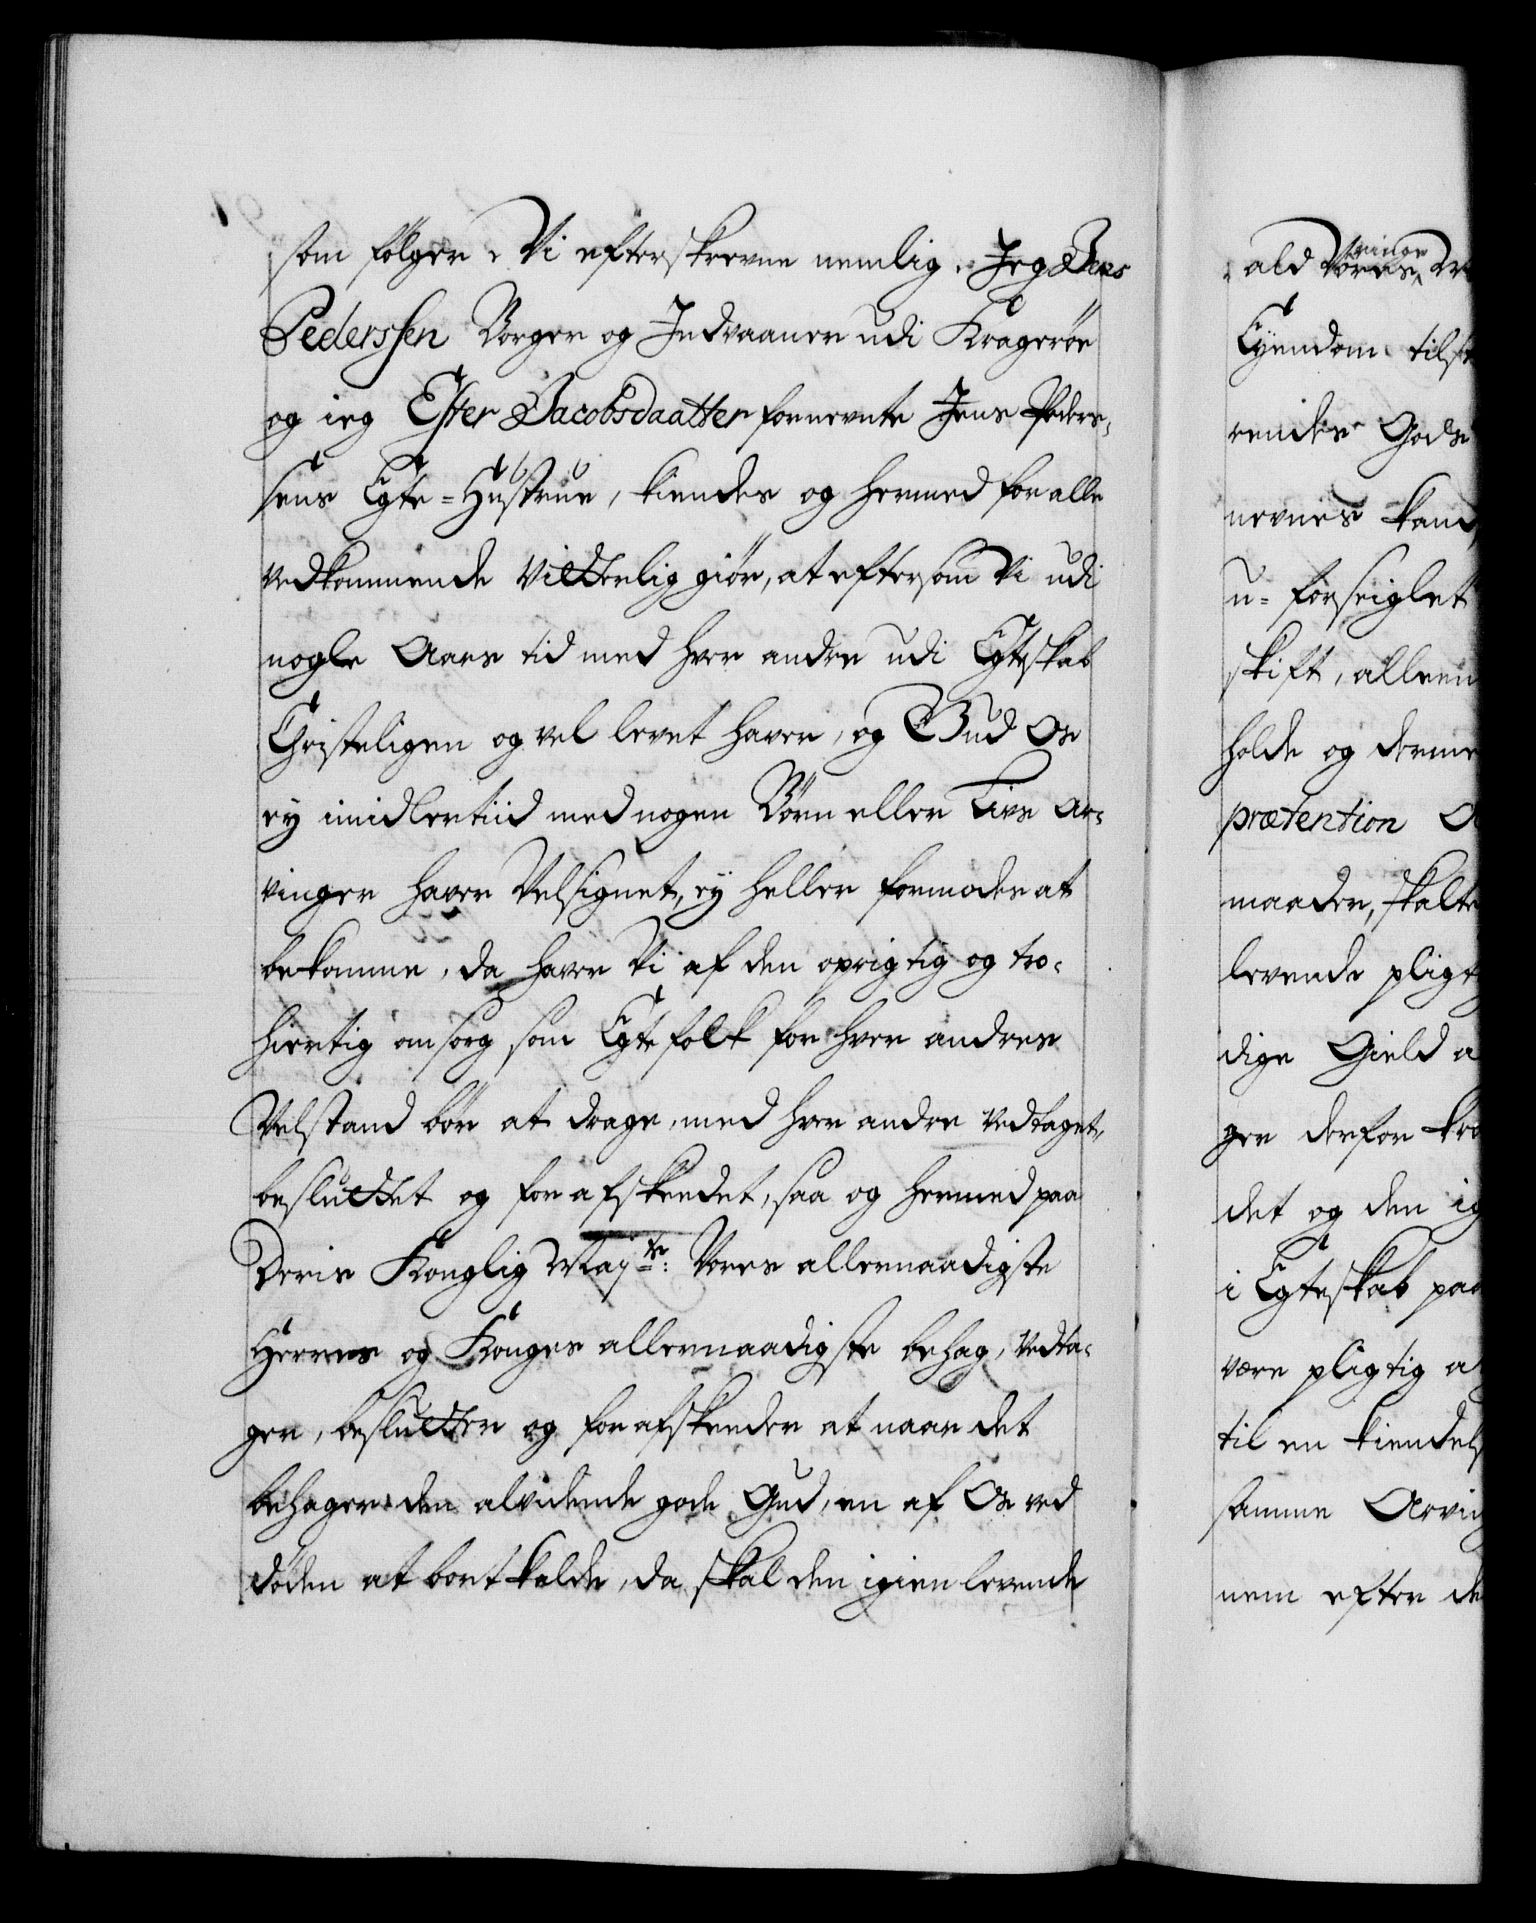 som følger. Vi efterskrevne nemlig. Jeg Jens
Pederssen Borger og Indvaaner udi Kragerøe
og ieg Ester Jacobsdaatter fornevnte Jens Peders-
sens Egte-Hustrue, kiendes og hermed for alle
vedkommende vitterlig giør, at eftersom Vi udi
nogle Aars tid med hver andre udi Egteskab
Christeligen og vel levet haver, og Gud Os
ey imidlertiid med nogen Børn eller Livs Ar-
vinger haver Velsignet, ey heller formoder at
bekomme, da haver Vi af den oprigtig og tro-
hiertig omsorg som Egtefolk for hver andres
Velstand bør at drage, med hver andre vedtaget,
besluttet og forafskeedet, saa og hermed paa
Deris Konglig Mayts: Vores allernaadigste
Herres og Konges allernaadigste behag, vedta-
ger, beslutter og forafskeeder at naar det
behager den alvidende gode Gud, en af Os ved
døden at bortkalde, da skal den igienlevende
ald Vores ringe
Eyendom tilst
rendes Gods
nevnes kand,
u-forseiglet
skift, alleen
holde og derme
prætention
maader, skalte
levende pligt
dige Gield a
ger derfor kra
det og den ig
i Egteskab paa
være pligtig a
til en kiendels
samme Arvin
nem efter de